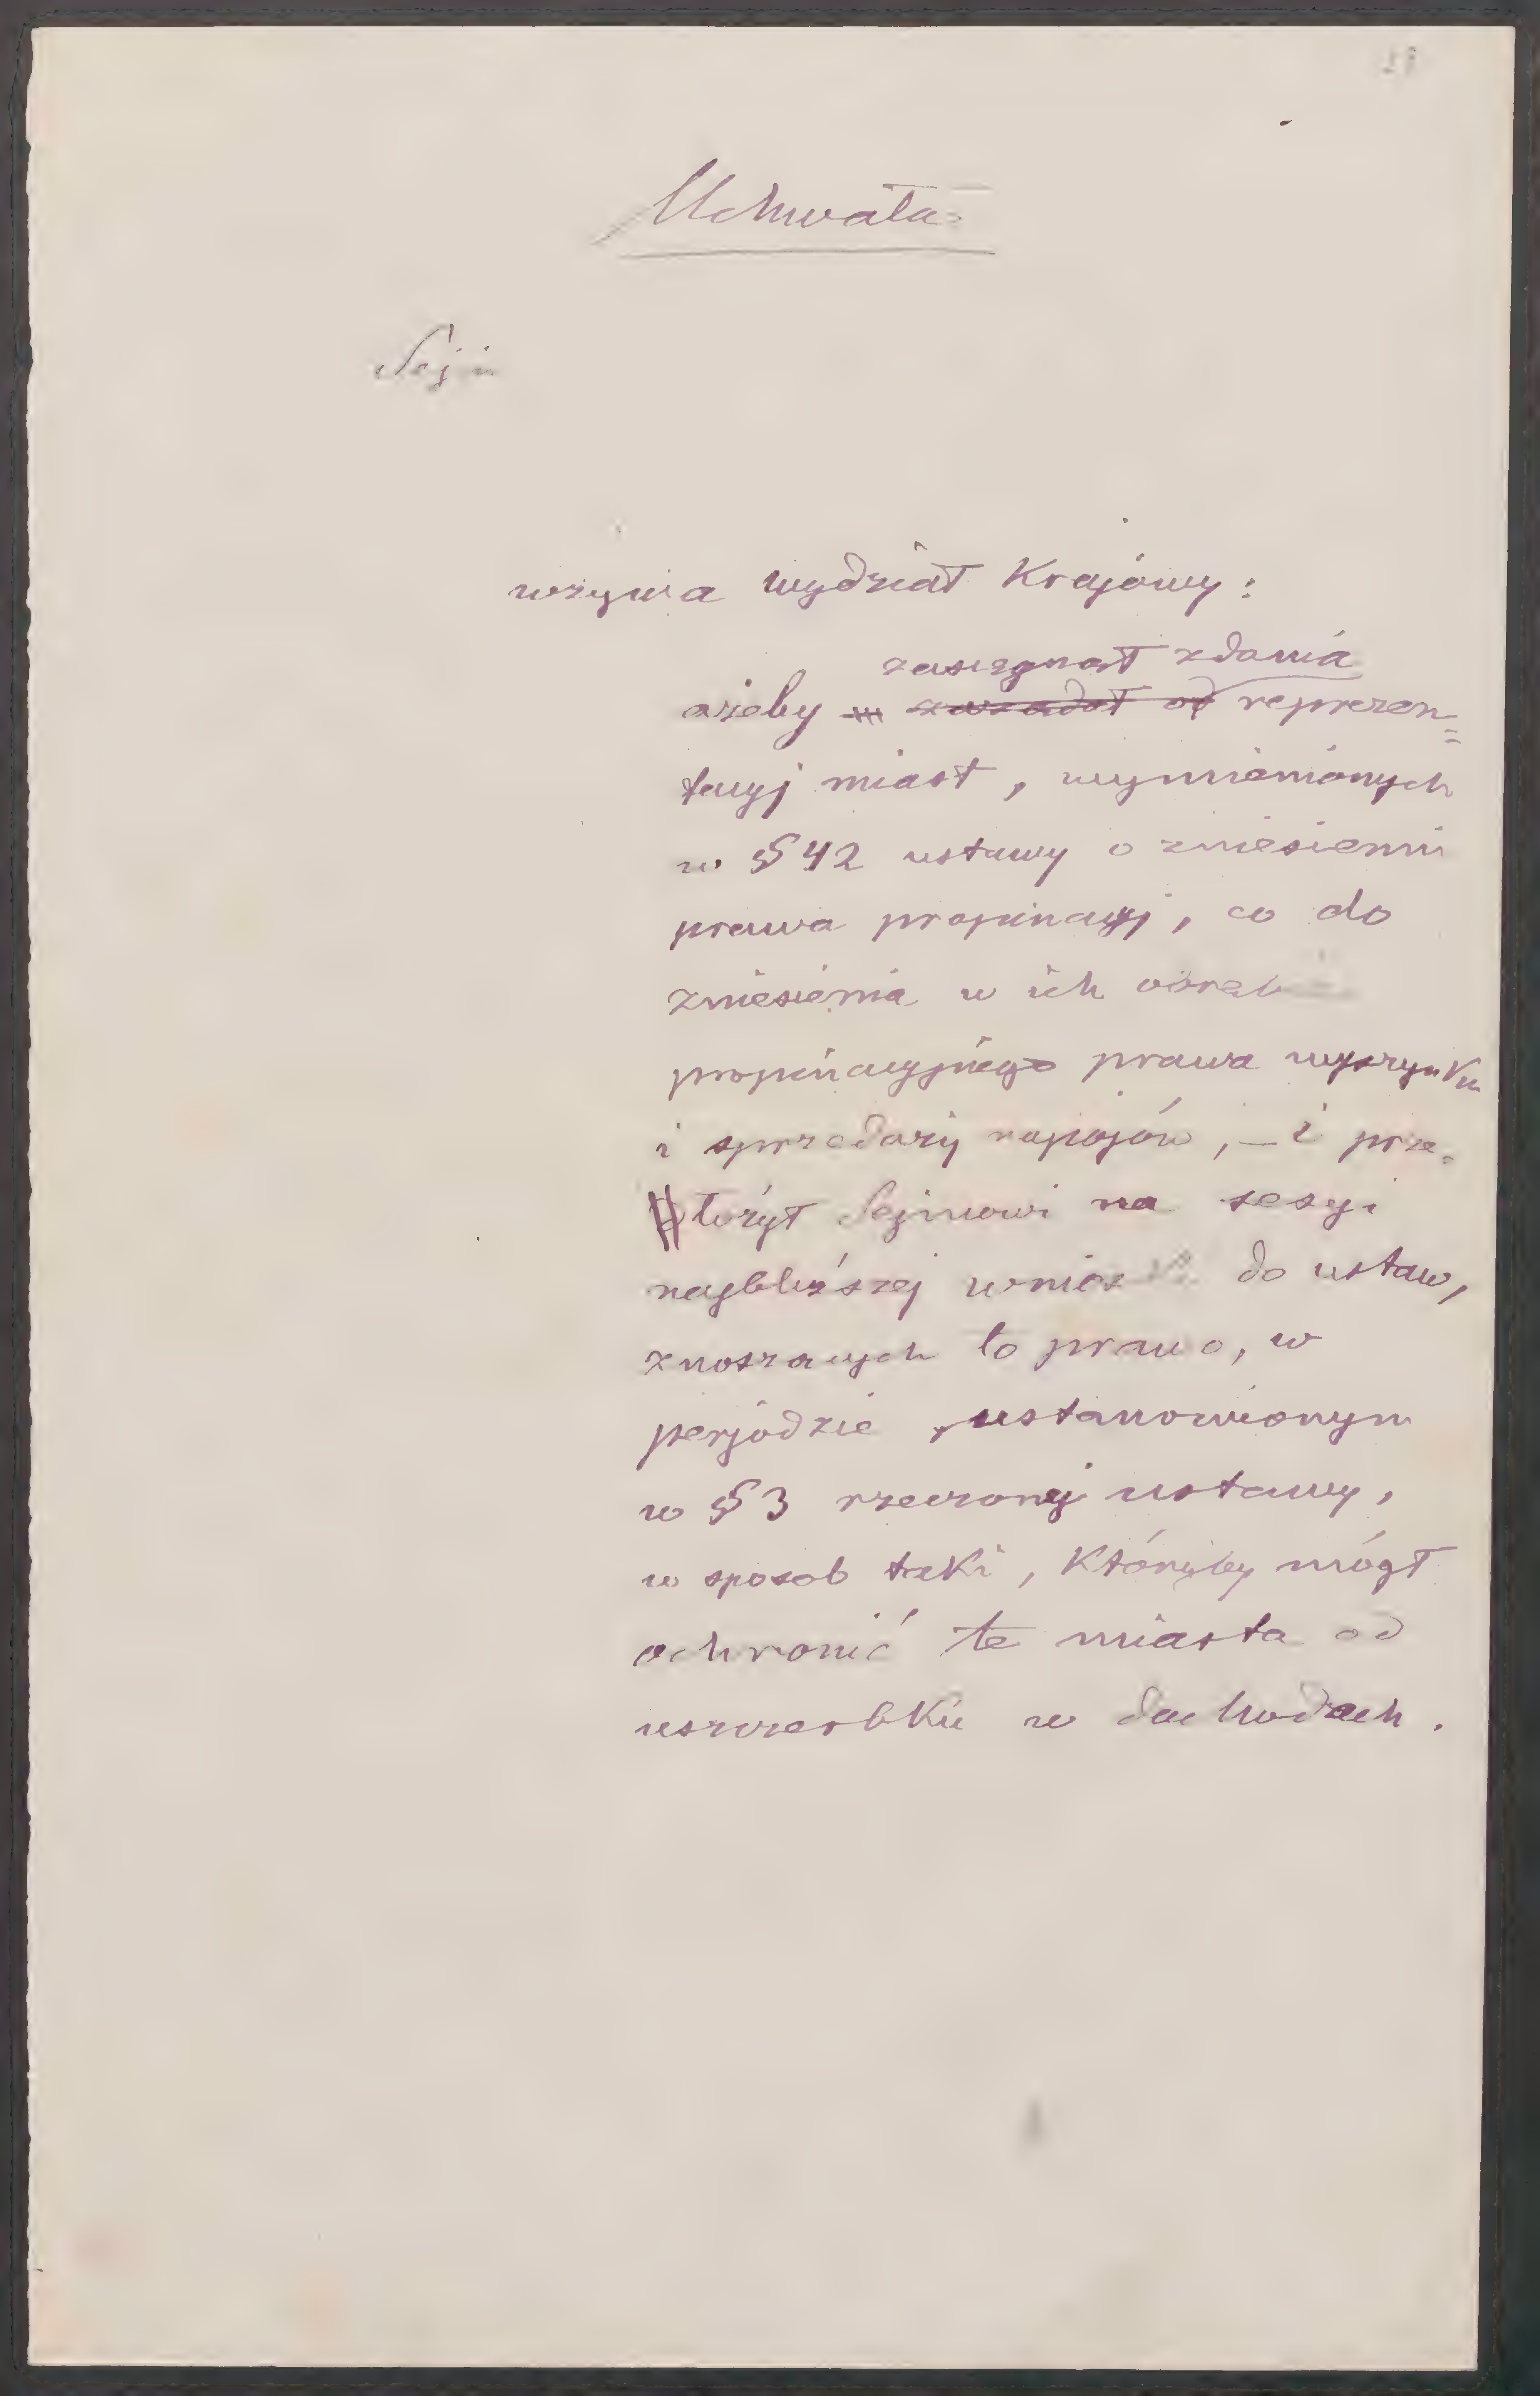 Uchwała
Sejm
wzywa wydział Krajowy:
zasięgnął zdania
ażeby zażądał od reprezen=
tacyj miast, wymienionych
w § 42 ustawy o zniesieniu
prawa propinacyj, co do
zniesienia w ich obrębie
propinacyjnego prawa wyszynku
i sprzedaży napojów, – i prze=
łożył Sejmowi na sesyi
najbliższej wnioski do ustaw,
znoszących to prawo, w
perjodzie ustanowionym
w § 3 rzeczonej ustawy,
w sposob taki, któryby mógł
ochronić te miasta od
uszczerbku w dochodach.